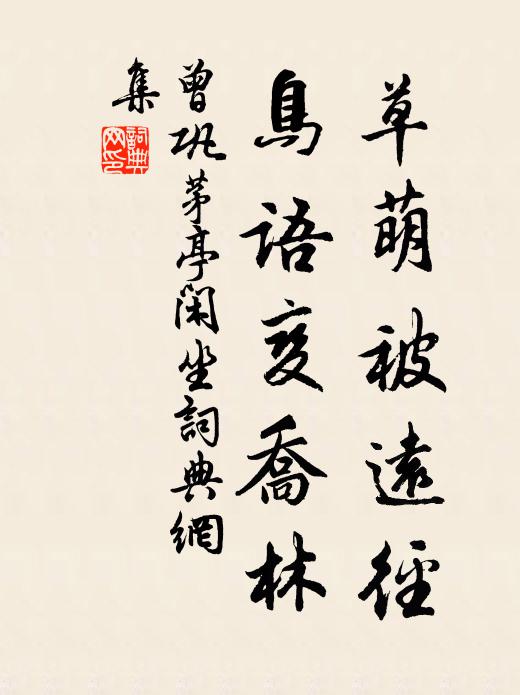 草萌被遠徑
鳥語变喬林
曾巩茅亭閑坐詞典網
集
詞典
网印